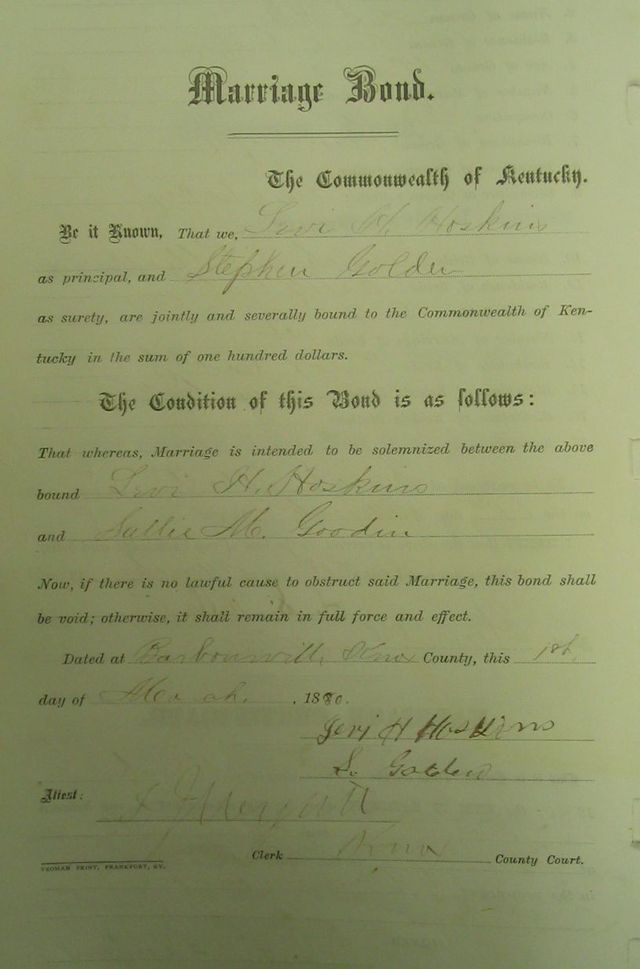 Marriage Bond.
The Commonwealth of Kentucky.
Be it Known, That we, Levi H. Hoskins
as principal, and Stephen Golden
as surety, are jointly and severally bound to the Commonwealth of Ken-
tucky in the sum of one hundred dollars.
The Condition of this Bond is as follows:
That whereas, Marriage is intended to be solemnized between the above
bound Levi H. Hoskins
and Sallie M. Goodin
Now, if there is no lawful cause to obstruct said Marriage, this bond shall
be void; otherwise, it shall remain in full force and effect.
Dated at Barbourvill, Knox County, this 1st
day of March, 1880.
Levi H Hoskins
S. Golden
Attest:
Clerk Knox County Court.
YEOMAN PRINT, FRANKFORT, KY.